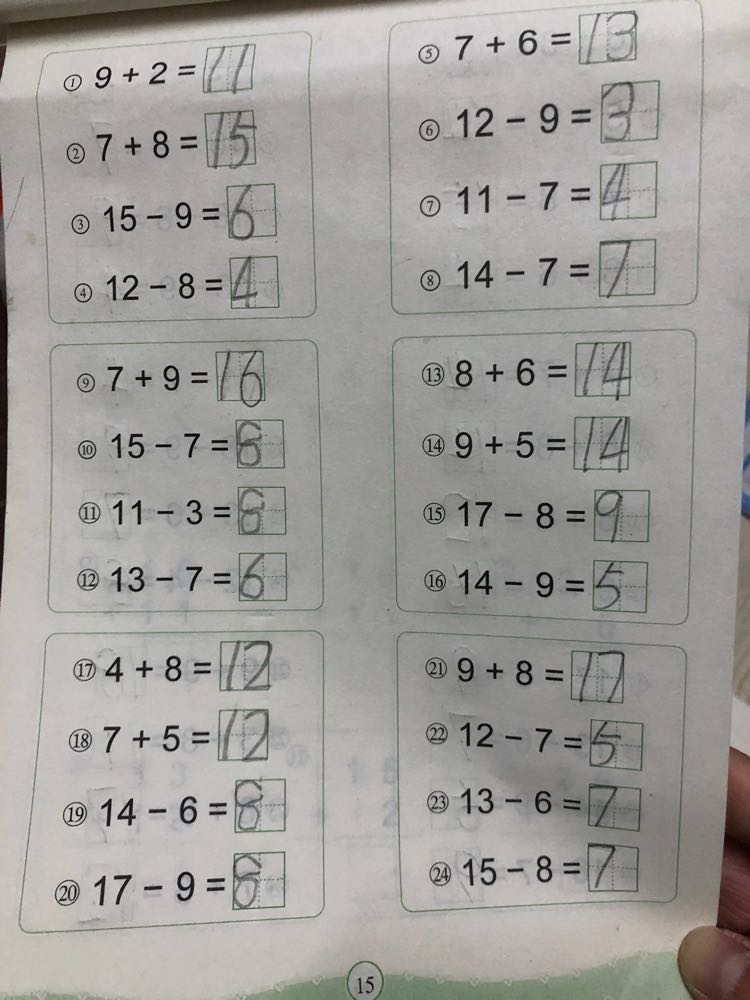 ① 9 + 2 = 11
② 7 + 8 = 15
③ 15 − 9 = 6
④ 12 − 8 = 4
⑤ 7 + 6 = 13
⑥ 12 − 9 = 3
⑦ 11 − 7 = 4
⑧ 14 − 7 = 7
⑨ 7 + 9 = 16
⑩ 15 − 7 = 8
⑪ 11 − 3 = 8
⑫ 13 − 7 = 6
⑬ 8 + 6 = 14
⑭ 9 + 5 = 14
⑮ 17 − 8 = 9
⑯ 14 − 9 = 5
⑰ 4 + 8 = 12
⑱ 7 + 5 = 12
⑲ 14 − 6 = 8
⑳ 17 − 9 = 8
㉑ 9 + 8 = 17
㉒ 12 − 7 = 5
㉓ 13 − 6 = 7
㉔ 15 − 8 = 7
15